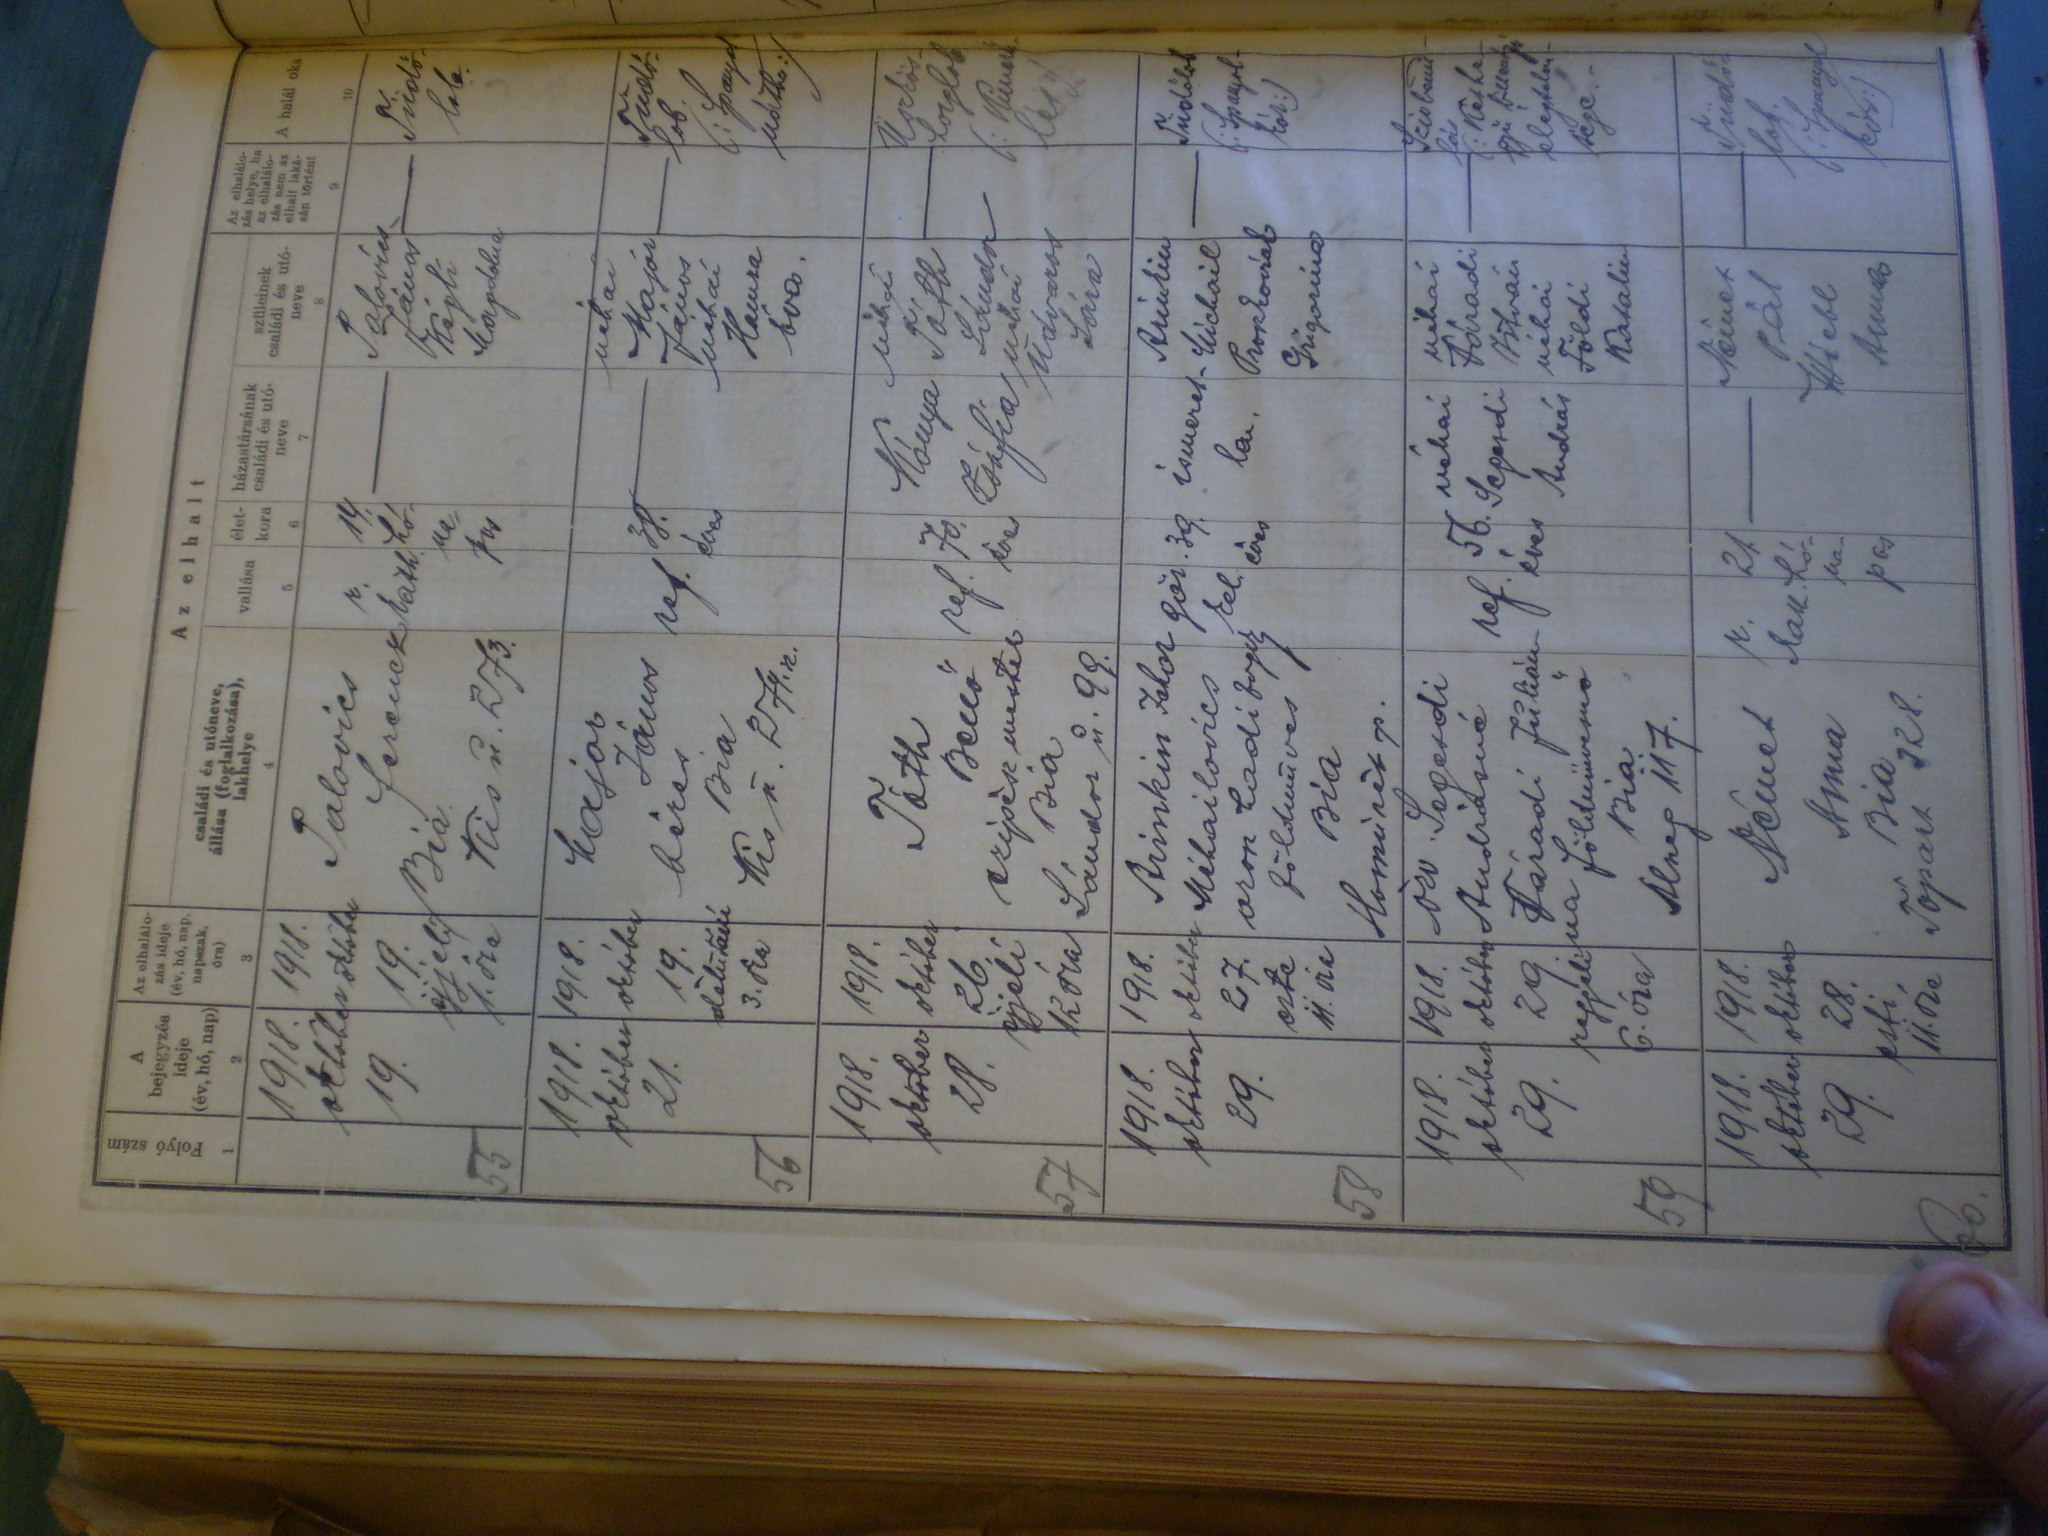 Az elhalt
Folyó szám
A bejegyzés ideje (év, hó, nap)
Az elhalálo-
zás ideje
(év, hó, nap,
napszak,
óra)
családi és utóneve,
állása (foglalkozása),
lakhelye
vallása
élet-
kora
házastársának
családi és utó-
neve
szüleinek
családi és utó-
neve
Az elhalálo-
zás helye, ha
az elhaláló-
zás nem az
elhalt laká-
sán történt
A halál oka
1
2
3
4
5
6
7
8
9
10
55
1918.
október
19.
1918.
október
19.
éjjeli
1. óra
Palovics
Ferencz
Bia
Kis u. 273.
r.
kath.
14.
hó-
na-
pos
Palovics
János
Kajli
Magdolna
Tüdő-
lob.
56
1918.
október
21.
1918.
október
19.
délutáni
3. óra
Major
János
béres
Bia
Kis u. 274.
ref.
38.
éves
néhai
Major
János
néhai
Hanza
Éva.
Tüdő-
lob.
57
1918.
október
28.
1918.
október
26.
éjjeli
12 óra
Tóth
Benő
cselédmester
Bia
Sándor u. 99.
ref.
70.
éves
Kónya
Zsófia
néhai
Tóth
Sándor
néhai
Madaras
Sára
58
1918.
október
29.
1918.
október
27.
este
11. óra
Arinkin
Mihailovics
orosz hadifogoly
földmíves
Bia
gör.
kel.
39.
éves
ismeret-
len.
Arinkin
Michail
Proskoviab
Grigorina
Tüdőlob
(: Spanyol-
kór :)
59
1918.
október
29.
1918.
október
29
reggeli
6. óra
özv. Segesdi
Andrásné
Váradi Julián-
na földmívesnő
Bia
117.
ref.
56.
éves
néhai
Segesdi
András
néhai
Váradi
István
néhai
Földi
Katalin
60.
1918.
október
29.
1918.
október
28.
esti,
11. óra
Német
Anna
Bia
Topart 328.
r.
kath.
21.
hó-
na-
pos
Német
Pál
Hiebl
Anna
Tüdő-
lob.
(: Spanyol
kór :)